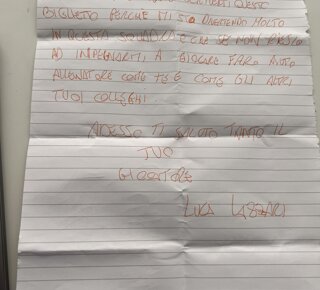 QUESTO
BIGLIETTO PERCHÉ MI STO DIVERTENDO MOLTO
IN QUESTA SQUADRA E CHE SE NON RIESCO
AD IMPEGNARTI A GIOCARE FARÒ
ALLENATORE COME TE E COME GLI ALTRI
TUOI COLLEGHI.
ADESSO TI SALUTO TANTO IL
TUO
GIOCATORE
LUCA